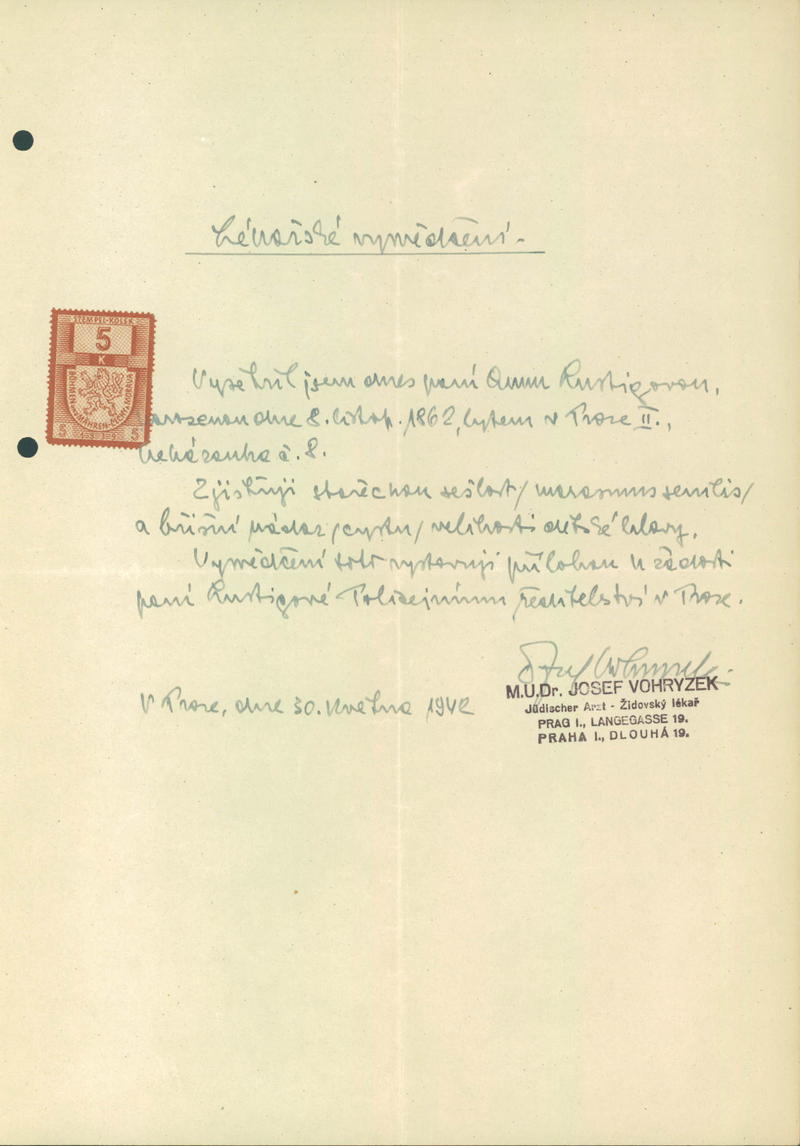 Lékařské vysvědčení.
STEMPEL-KOLEK
5
K
BÖHMEN und MÄHREN-ČECHY a MORAVA
5 1939 5
Vyšetřil jsem dnes paní Annu Rustigovou,
narozenou dne 8. listop. 1862, bytem v Praze II.,
č. 8.
Zjišťuji stařeckou sešlost /marasmus senilis/
a břišní nádor /cystu/ velikosti dětské hlavy.
Vysvědčení toto vystavuji přílohou k žádosti
paní Rustigové Policejnímu ředitelství v Praze.
V Praze, dne 30. května 1942
M.U.Dr. JOSEF VOHRYZEK
Jüdischer Arzt - Židovský lékař
PRAG I., LANGEGASSE 19.
PRAHA I., DLOUHÁ 19.